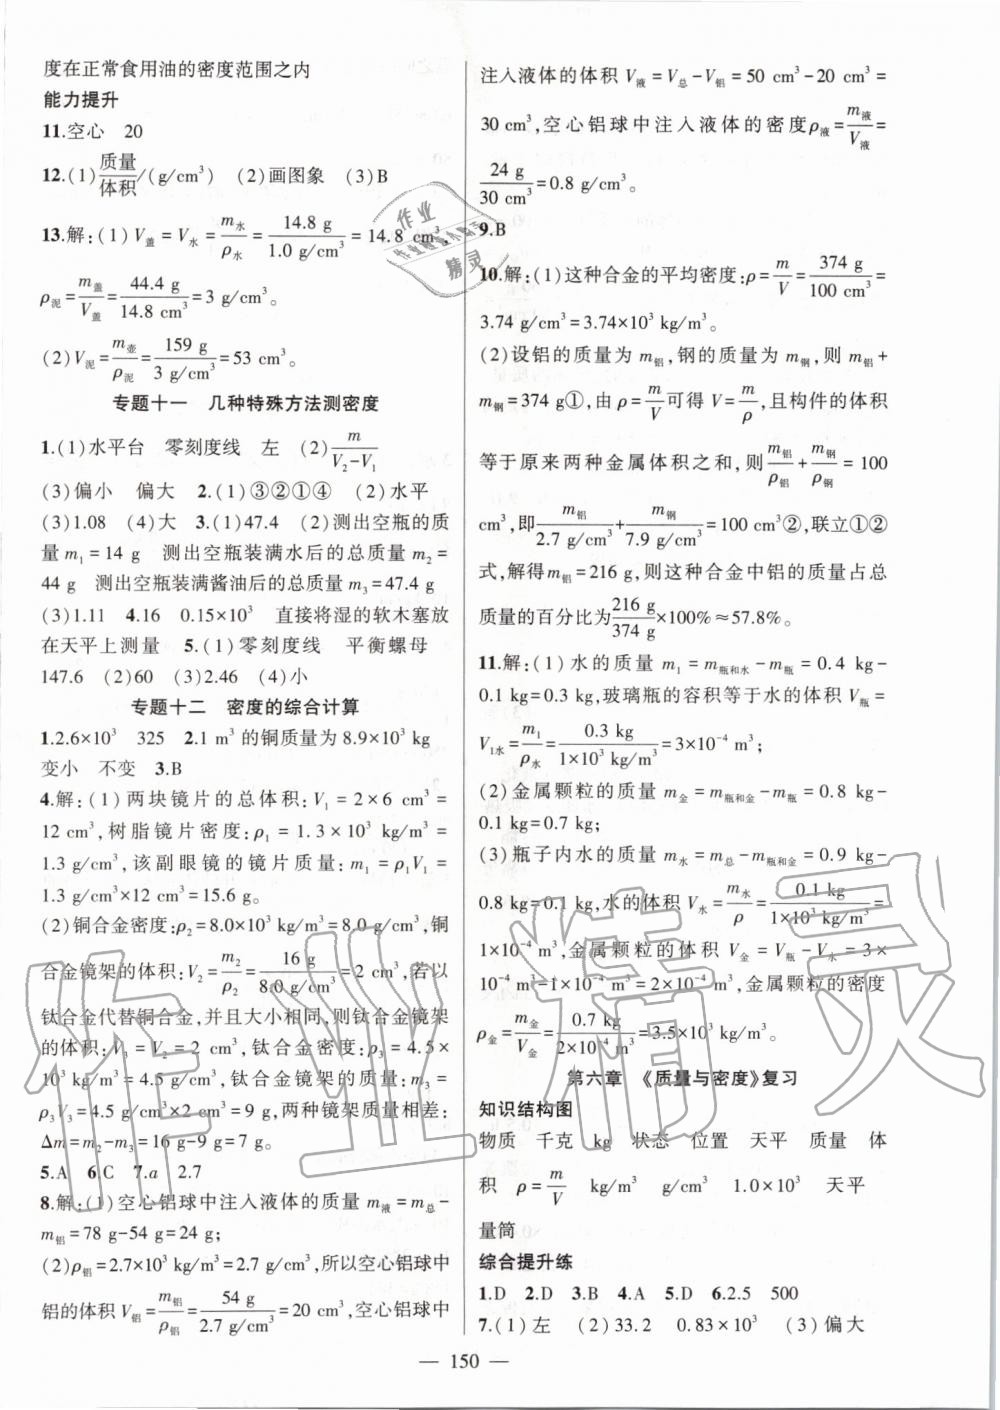 度在正常食用油的密度范围之内
能力提升
11.空心 20
12.(1)质量/体积/(g/cm³) (2)画图象 (3)B
13.解:(1)V盖=V水=m水/ρ水=14.8 g/1.0 g/cm³=14.8 cm³,
ρ泥=m盖/V盖=44.4 g/14.8 cm³=3 g/cm³;
(2)V泥=m壶/ρ泥=159 g/3 g/cm³=53 cm³。
专题十一 几种特殊方法测密度
1.(1)水平台 零刻度线 左 (2)m/V₂-V₁
(3)偏小 偏大 2.(1)③②①④ (2)水平
(3)1.08 (4)大 3.(1)47.4 (2)测出空瓶的质
量 m₁=14 g 测出空瓶装满水后的总质量 m₂=
44 g 测出空瓶装满酱油后的总质量 m₃=47.4 g
(3)1.11 4.16 0.15×10³ 直接将湿的软木塞放
在天平上测量 5.(1)零刻度线 平衡螺母
147.6 (2)60 (3)2.46 (4)小
专题十二 密度的综合计算
1.2.6×10³ 325 2.1 m³的铜质量为 8.9×10³ kg
变小 不变 3.B
4.解:(1)两块镜片的总体积:V₁=2×6 cm³=
12 cm³,树脂镜片密度:ρ₁=1.3×10³ kg/m³=
1.3 g/cm³,该副眼镜的镜片质量:m₁=ρ₁V₁=
1.3 g/cm³×12 cm³=15.6 g。
(2)铜合金密度:ρ₂=8.0×10³ kg/m³=8.0 g/cm³,铜
合金镜架的体积:V₂=m₂/ρ₂=16 g/8.0 g/cm³=2 cm³,若以
钛合金代替铜合金,并且大小相同,则钛合金镜架
的体积:V₃=V₂=2 cm³,钛合金密度:ρ₃=4.5×
10³ kg/m³=4.5 g/cm³,钛合金镜架的质量:m₃=
ρ₃V₃=4.5 g/cm³×2 cm³=9 g,两种镜架质量相差:
Δm=m₂-m₃=16 g-9 g=7 g。
5.A 6.C 7.a 2.7
8.解:(1)空心铝球中注入液体的质量 m液=m总-
m铝=78 g-54 g=24 g;
(2)ρ铝=2.7×10³ kg/m³=2.7 g/cm³,所以空心铝球中
铝的体积 V铝=m铝/ρ铝=54 g/2.7 g/cm³=20 cm³,空心铝球中
注入液体的体积 V液=V总-V铝=50 cm³-20 cm³=
30 cm³,空心铝球中注入液体的密度ρ液=m液/V液=
24 g/30 cm³=0.8 g/cm³。
9.B
10.解:(1)这种合金的平均密度:ρ=m/V=374 g/100 cm³=
3.74 g/cm³=3.74×10³ kg/m³。
(2)设铝的质量为 m铝,钢的质量为 m钢,则 m铝+
m钢=374 g①,由ρ=m/V可得 V=m/ρ,且构件的体积
等于原来两种金属体积之和,则m铝/ρ铝+m钢/ρ钢=100
cm³,即m铝/2.7 g/cm³+m钢/7.9 g/cm³=100 cm³②,联立①②
式,解得m铝=216 g,则这种合金中铝的质量占总
质量的百分比为216 g/374 g×100%≈57.8%。
11.解:(1)水的质量 m₁=m瓶和水-m瓶=0.4 kg-
0.1 kg=0.3 kg,玻璃瓶的容积等于水的体积 V瓶=
V1水=m₁/ρ水=0.3 kg/1×10³ kg/m³=3×10⁻⁴ m³;
(2)金属颗粒的质量 m金=m瓶和金-m瓶=0.8 kg-
0.1 kg=0.7 kg;
(3)瓶子内水的质量 m水=m总-m瓶和金=0.9 kg-
0.8 kg=0.1 kg,水的体积 V水=m水/ρ=0.1 kg/1×10³ kg/m³=
1×10⁻⁴ m³,金属颗粒的体积 V金=V瓶-V水=3×
10⁻⁴ m³-1×10⁻⁴ m³=2×10⁻⁴ m³,金属颗粒的密度
ρ金=m金/V金=0.7 kg/2×10⁻⁴ m³=3.5×10³ kg/m³。
第六章 《质量与密度》复习
知识结构图
物质 千克 kg 状态 位置 天平 质量 体
积 ρ=m/V kg/m³ g/cm³ 1.0×10³ 天平
量筒
综合提升练
1.D 2.D 3.B 4.A 5.D 6.2.5 500
7.(1)左 (2)33.2 0.83×10³ (3)偏大
— 150 —
作业精灵